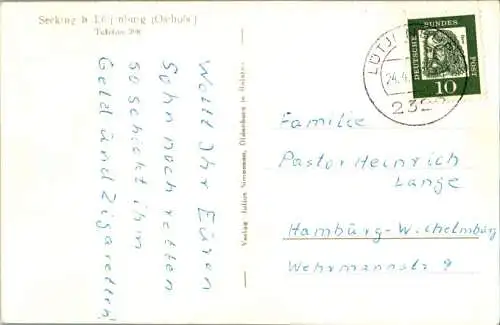 Seekrug b. Lütjenburg (Ostholst)
Telefon
Wollt Ihr Euren
Sohn noch retten
so schickt ihm
Geld und Zigaretten!
Verlag Julius Simonsen, Oldenburg in Holstein
DEUTSCHE BUNDESPOST
10
LÜTJ
24.4
232
Familie
Pastor Heinrich
Lange
Hamburg-Wilhelmsburg
Wehrmannstr 9